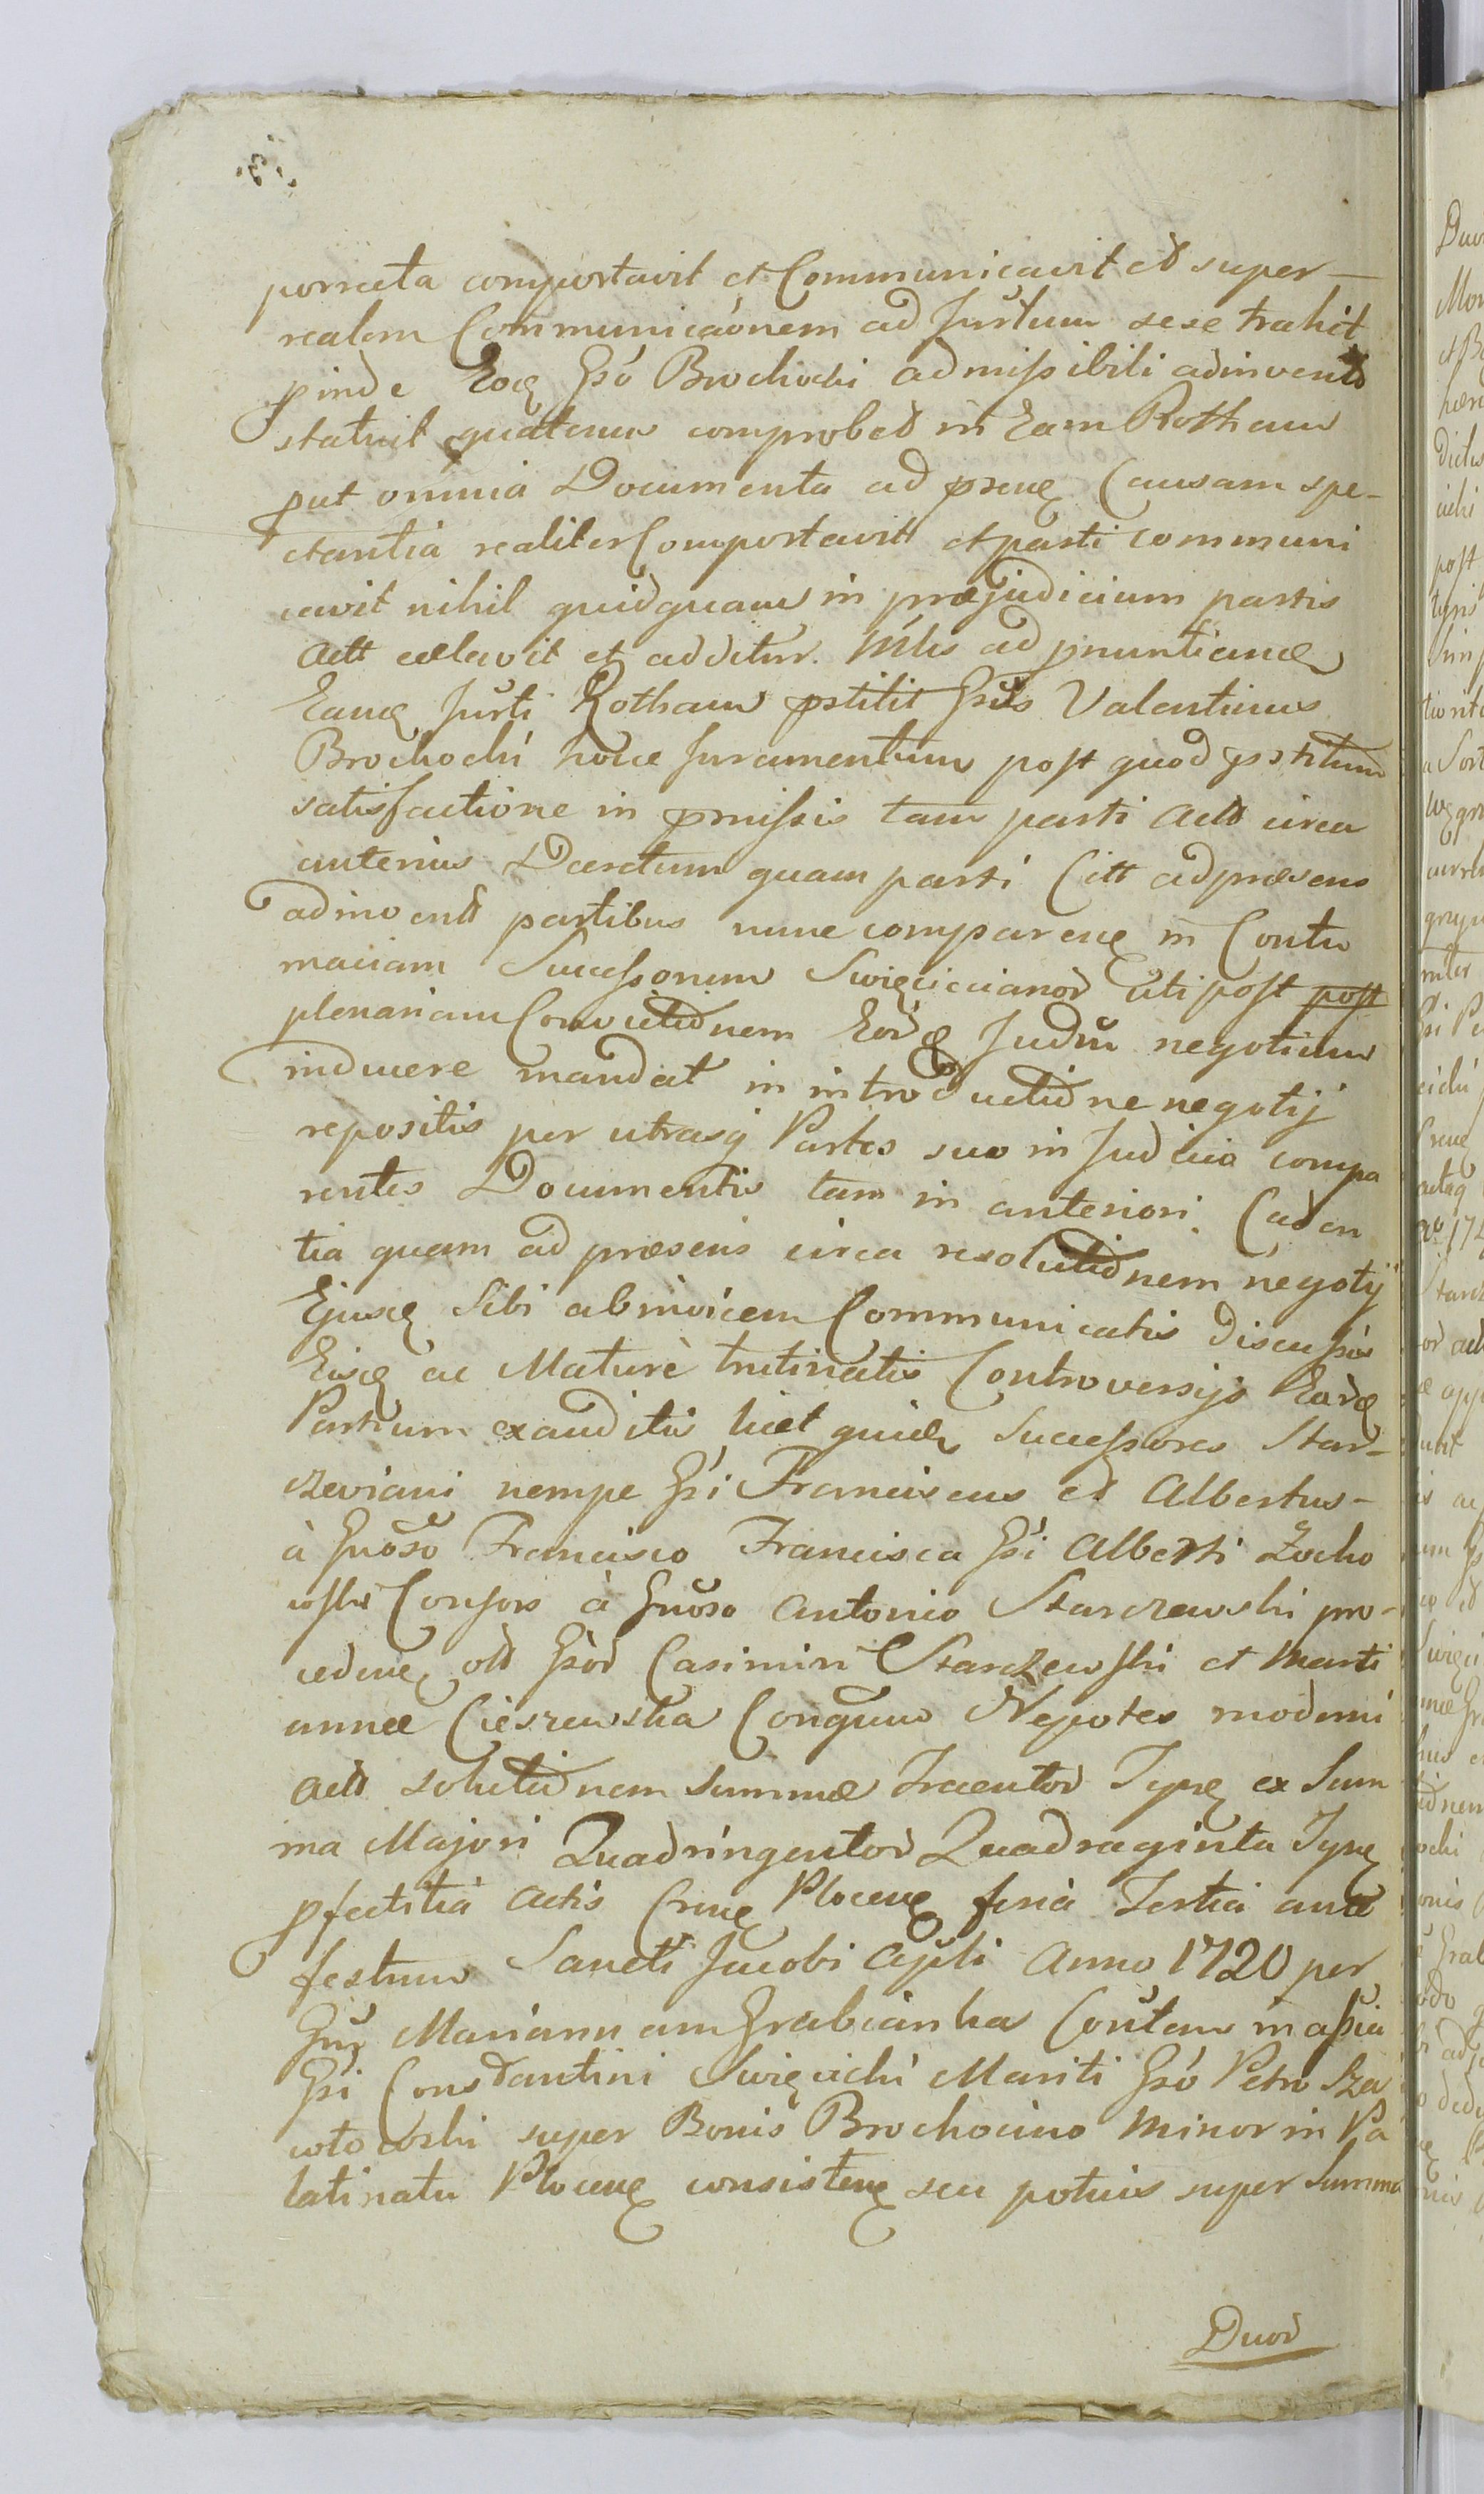 porrecta comportavit et Communicavit et super
realem Communicaonem ad Jurtum sese trahit
pinde Eoq Gso Brochocki admissibili adinvento
statuit quatenus comprobet in Eam Rotham
put omnia Documenta ad prneq Causam spe-
ctantia realiter Comportavit et parti communi
cavit nihil quidquam in præjudicium partis
Actt celavit et additur. Mtis ad pnuntianda
Eanq Jurti Rotham pstitit Gsus Valentinus
Brochocki hocce Juramentum post quod pstitum
satisfactione in pmissis tam parti Actt circa
anterius Decretum quam parti Citt ad præsens
adinventt partibus nunc compareneq in Contu
maciam Successorum Swięciccianor uti post post
plenariam Convictionem Eord Judm negotium
inducere mandat in introductione negotij
repositis per utrasq Partes suo in Judicio compa
rentes Documentis tam in anteriori Caden
tia quam ad præsens circa resolutionem negotij
Ejusq Sibi ab invicem Communicatis discussis
Eisq ac Maturè trutinatis Controversijs Eard
Partium exauditis licet quidem Successores Star-
czeviani nempe Gsi Franciscus et Albertus-
à Gnoso Francisco Francisca Gsi Alberti Zocho
wski Consors à Gnoso Antonio Starczewski pro-
cedneq olt Gsor Casimiri Starczewski et Mari
annæ Cieszewska Conqum Nepotes moderni
Actt solutionem Summæ Trecentor Tynq ex Sum
ma Majori Quadringentor Quadraginta Tynq
pfectitia Actis Crneq Ploceneq feria Tertia ante
festum Sancti Jacobi Apli Anno 1720 per
Gnq Mariannam Grabianka Contam in assia
Gsi Constantini Swięcicki Mariti Gso Petro Sza
cotowski super Bonis Brochocino Minor in Pa
latinatu Ploceneq consisteneq seu potius super Summa
Duor